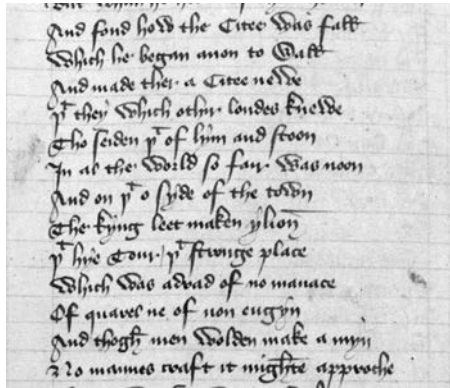 And fond how the Citee was fall
Which he began anon to Wall
And made ther a Citee newe
þᵗ they Which othir londes knewe
Tho seiden þᵗ of lym and stoon
In al the World so fair Was noon
And on þᵗ o syde of the town
The kyng leet maken ylion
þᵗ hye Tour þᵗ strenge place
Which Was adrad of no manace
Of quarel ne of non engyn
And thogh men Wolden make a myn
No mannes craft it mighte approche